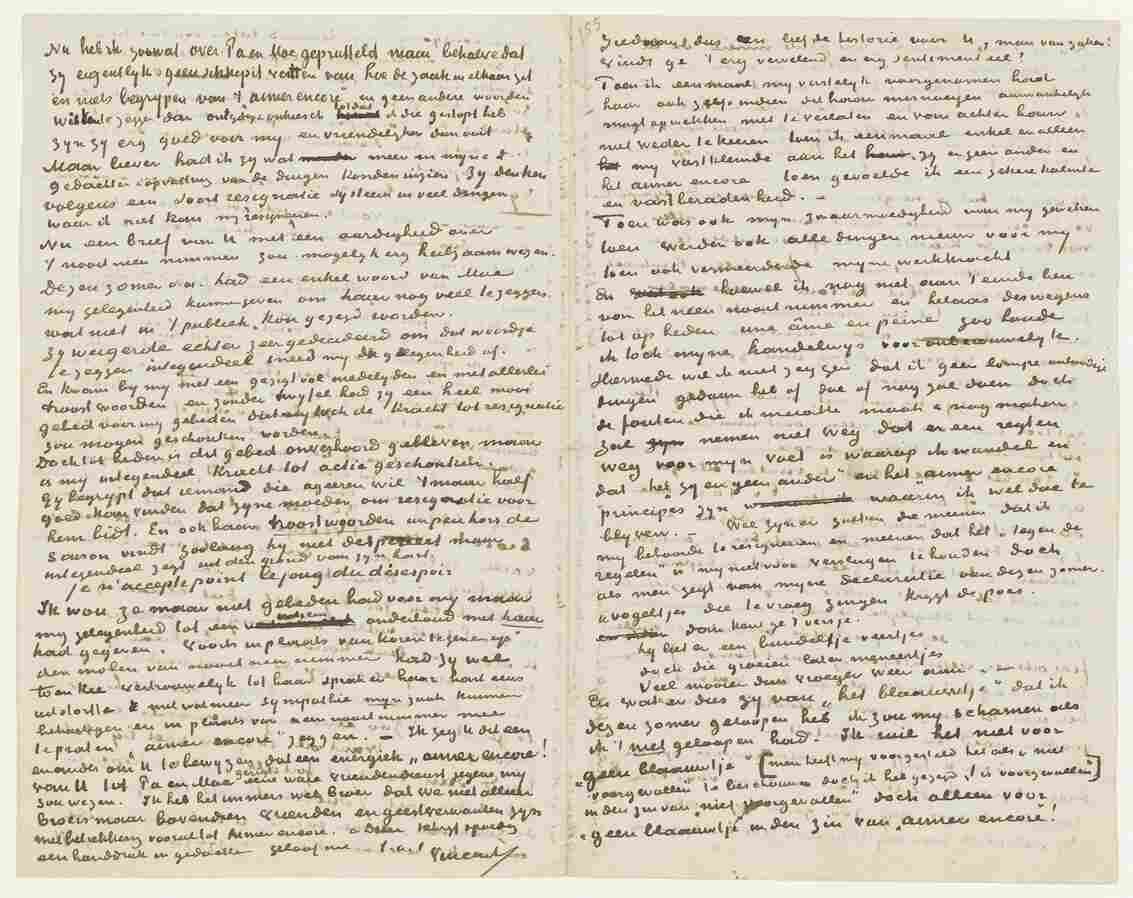 Nu heb ik zoowat over Pa en Moe geprutteld maar behalve dat
zy eigentlyk geen schepit van hoe de zaak in elkaar zit
en niets begrypen van 't aimer encore en geen andere woorden
te zeggen dan ontydig en die gestopt heb
zyn zy erg goed voor my en vriendelyker dan ooit
Maar liever had ik zy wat meer in myne
gedachten & opvatting van de dingen konden inzien. Zy denken
volgens een soort resignatie systeem in veel dingen
waar ik niet kan my resigneren.
Nu een brief van U met een aardigheid over
't nooit neen nimmer zou mogelyk erg heilzaam wezen.
Dezen zomer o.a. had een enkel woord van Moe
my gelegenheid kunnen geven om haar nog veel te zeggen
wat niet in 't publiek kon gezegd worden.
Zy weigerde echter zeer gedecideerd om dat woordje
te zeggen integendeel sneed my de gelegenheid af.
En kwam by my met een gezigt vol medelyden en met allerlei
troostwoorden en zonder twyfel had zy een heel mooi
gebed voor my gebeden dat my toch de kracht tot resignatie
zou mogen geschonken worden.
Doch tot heden is dit gebed onverhoord gebleven, maar
is my integendeel kracht tot actie geschonken.
Gy begrypt dat iemand die ageeren wil 't maar half
goed kan vinden dat zyne moeder om resignatie voor
hem bidt. En ook haar troostwoorden un peu hors de
saison vindt zoolang hy niet despereert maar
integendeel zegt uit den grond van zyn hart.
Je n'accepte point le joug du désespoir
Ik wou ze maar niet gebeden had voor my maar
my gelegenheid tot een onderhoud met haar
had gegeven. Voorts in plaats van koren te geven op
den molen van nooit neen nimmer had zy wel
toen Kee vertrouwelyk tot haar sprak en haar hart eens
uitstortte met wat meer sympathie myn zaak kunnen
behartigen en in plaats van neen nooit nimmer mee
te praten, "aimer encore" zeggen. — Ik zeg U dit een
en ander om U te bewyzen dat een energiek "aimer encore!
van U tot Pa en Moe gezegd eene ware vriendendienst jegens my
zou wezen. Ik heb het immers wel broer dat we niet alleen
broers maar bovendien vrienden en geestverwanten zyn
met betrekking vooral tot aimer encore. à Dieu spoedig
een handdruk in gedachten geloof me t. à t. Vincent
Ziedaar dus een liefde historie voor U, "man van zaken!
Vindt ge 't erg vervelend en erg sentimenteel?
Toen ik eenmaal my vastelyk voorgenomen had
haar ook zelfs indien dit haar misnoegen aanvankelyk
mogt opwekken niet te verlaten en van achter haar
niet weder te keeren toen ik eenmaal enkel en alleen
my vastklemde aan het zy en geen ander en
het aimer encore toen gevoelde ik een zekere kalmte
en vastberadenheid. —
Toen was ook myn zwaarmoedigheid van my geweken
toen werden ook alle dingen nieuw voor my
toen ook vermeerderde myne werkkracht
En hoewel ik nog niet aan 't einde ben
van het neen nooit nimmer en helaas deswegens
tot op heden une âme en peine zoo houde
ik toch myne handelwys
Hiermede wil ik niet zeggen dat ik geen
dingen gedaan heb of doe of nog zal doen doch
de fouten die ik maakte maak & nog maken
zal nemen niet weg dat er een regten
weg voor myn voet is waarop ik wandel en
dat het "zy en geen ander" en het "aimer encore"
principes zyn waarin ik wel doe te
blyven. —
Wel zyn er zoetjes die meenen dat ik
my behoorde te resigneren en meenen dat het "tegen de
regelen" is my niet voor verslagen te houden doch
als men zegt van myne declaratie van dezen zomer.
"vogeltjes die te vroeg zingen krygt de poes.
dan ken ge 't versje.
hy liet er een bundeltje veertjes
doch die groeien later meneertjes
Veel mooier dan vroeger weer aan.
En wat er dies zy van "het blaauwtje" dat ik
dezen zomer geloopen heb ik zou my schamen als
ik 't niet geloopen had. Ik wil het niet voor
"geen blaauwtje" [men heeft my voorgesteld het als "niet
"voorgevallen" te beschouwen doch ik heb gezegd, 't is voorgevallen"]
in den zin van "niet voorgevallen" doch alleen voor
"geen blaauwtje" in den zin van "aimer encore!